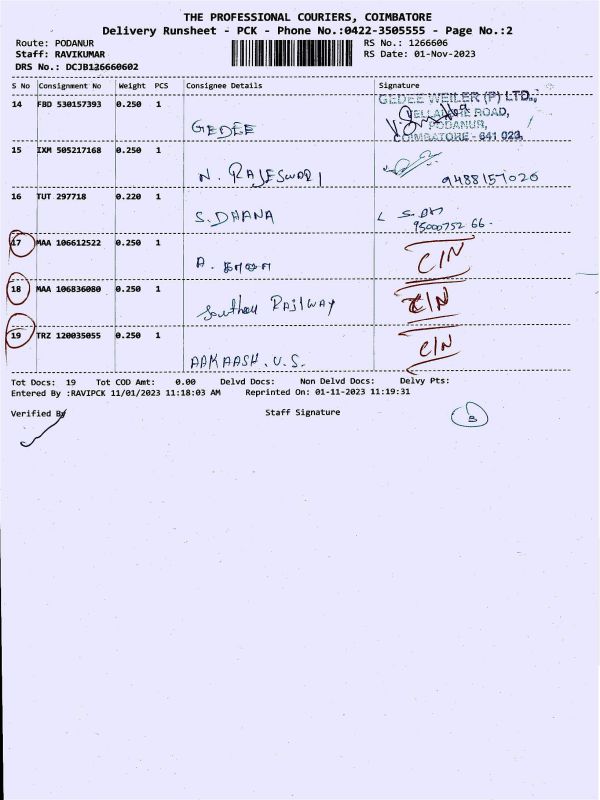 THE PROFESSIONAL COURIERS, COIMBATORE
Delivery Runsheet - PCK - Phone No.:0422-3505555 - Page No.:2
Route: PODANUR RS No.: 1266606
Staff: RAVIKUMAR RS Date: 01-Nov-2023
DRS No.: DCJB126660602
S No Consignment No Weight PCS Consignee Details Signature
14 FBD 530157393 0.250 1 GEDEE WEILER (P) LTD.,
VELLALORE ROAD,
PODANUR,
GEDEE COIMBATORE - 641 023.
15 IXM 505217168 0.250 1
N. RAJESWARI 9488157026
16 TUT 297718 0.220 1
S. DHANA
95000752 66.
17 MAA 106612522 0.250 1 C/N
A.
18 MAA 106836080 0.250 1 C/N
Southern Railway
19 TRZ 120035055 0.250 1 C/N
AAKAASH. U.S.
Tot Docs: 19 Tot COD Amt: 0.00 Delvd Docs: Non Delvd Docs: Delvy Pts:
Entered By :RAVIPCK 11/01/2023 11:18:03 AM Reprinted On: 01-11-2023 11:19:31
Verified By Staff Signature